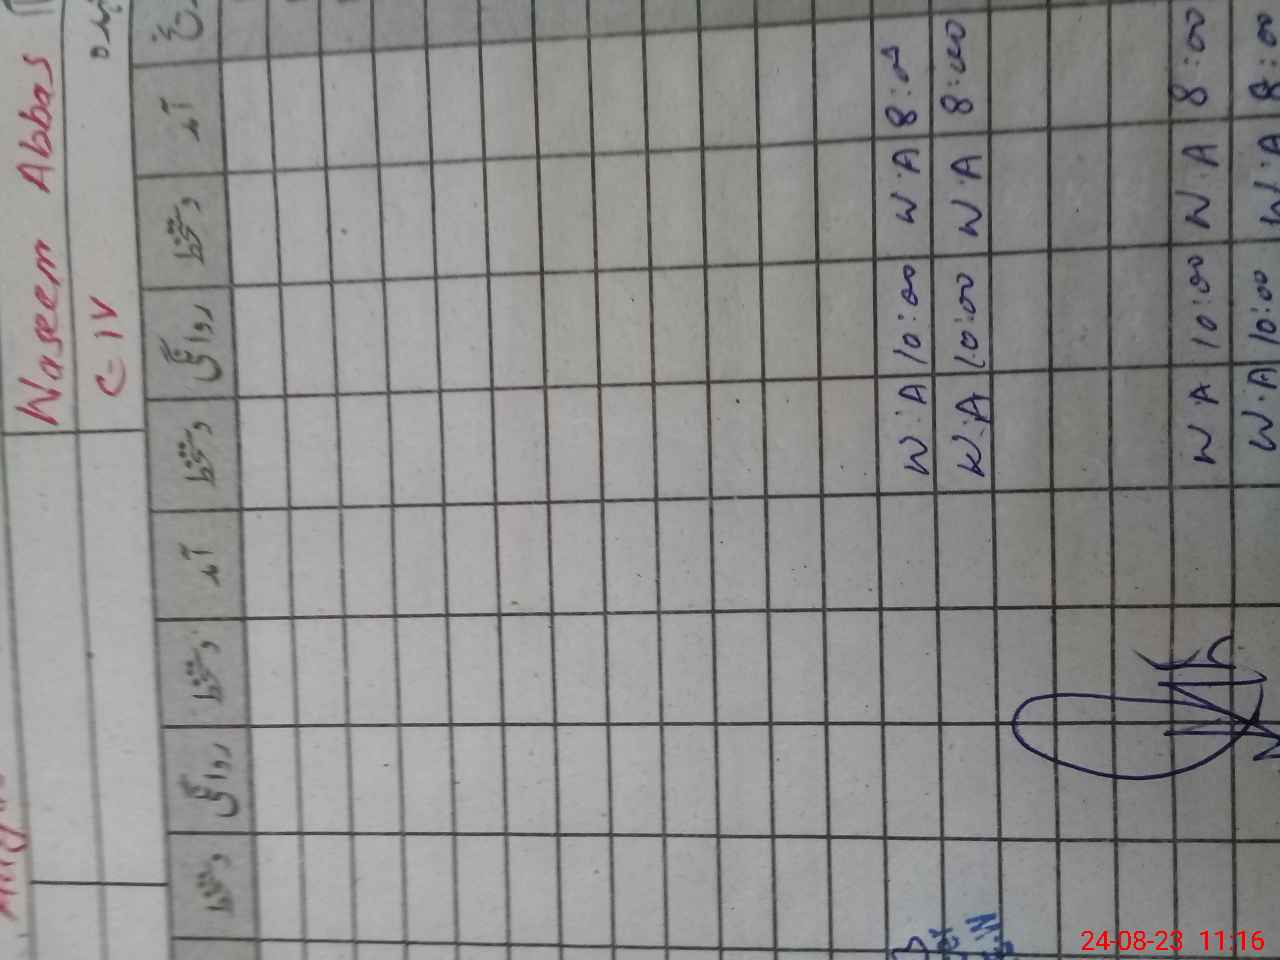 Waseem Abbas
C-IV
آمد دستخط روانگی دستخط آمد دستخط روانگی دستخط
W.A 10:00 W.A 8:00
W.A 10:00 W.A 8:00
W.A 10:00 W.A 8:00
W.A 10:00 W.A 8:00
24-08-23 11:16